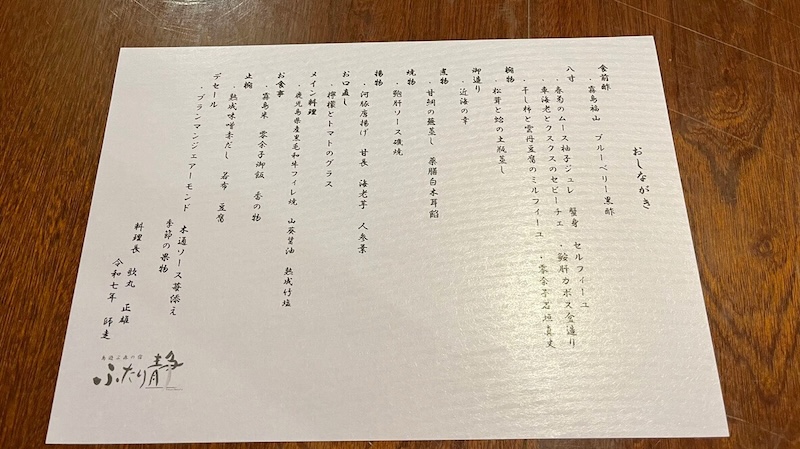 おしながき
食前酢
・霧島福山　ブルーベリー黒酢
八寸
・春菊のムース柚子ジュレ　蟹身　セルフィーユ
・車海老とクスクスのセビーチェ　・鮟肝カボス釜盛り
・干し柿と雲丹豆腐のミルフィーユ　・零余子石垣真丈
椀物
・松茸と蛤の土瓶蒸し
御造り
・近海の幸
煮物
・甘鯛の蕪蒸し　薬膳白木耳餡
焼物
・鮑肝ソース磯焼
揚物
・河豚唐揚げ　甘長　海老芋　人参葉
お口直し
・檸檬とトマトのグラス
メイン料理
・鹿児島県産黒毛和牛フィレ焼　山葵醤油　熟成竹塩
お食事
・霧島米　零余子御飯　香の物
止椀
・熟成味噌赤だし　若布　豆腐
デセール
・ブランマンジェアーモンド
木通ソース苺添え
季節の果物
料理長　歌丸　正雄
令和七年　師走
ふたり静